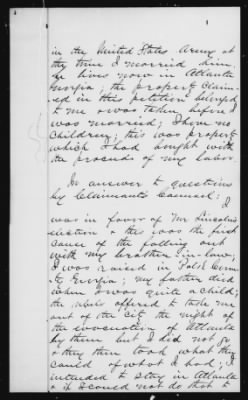 1
in the United States Army at
the time I married him.
he lives now in Atlanta
Georgia; the property claim-
-ed in this petition belonged
to me & was taken before I
was married; I have no
children; this was property
which I had bought with
the proceeds of my labor.
In answer to questions
by Claimants Counsel: I
was in favor of Mr Lincoln's
election & this was the first
cause of the falling out
with my brother-in-law;
I was raised in
Georgia; my father died
when I was quite a child;
the rebels offered to take me
out of the city the night of
the evacuation of Atlanta
by them but I did not go
& they then took what they
could of what I had; I
intended to stay in Atlanta
& if I could not do that to